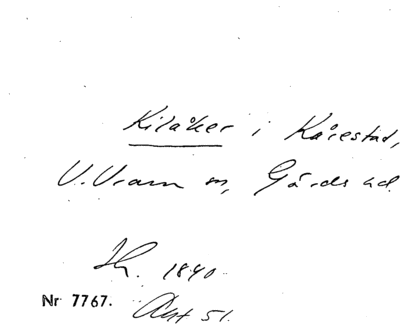 Kilåker i Kårestad,
V. Vram sn, Gärds hd.
Sk. 1840.
Nr 7767. Akt 51.